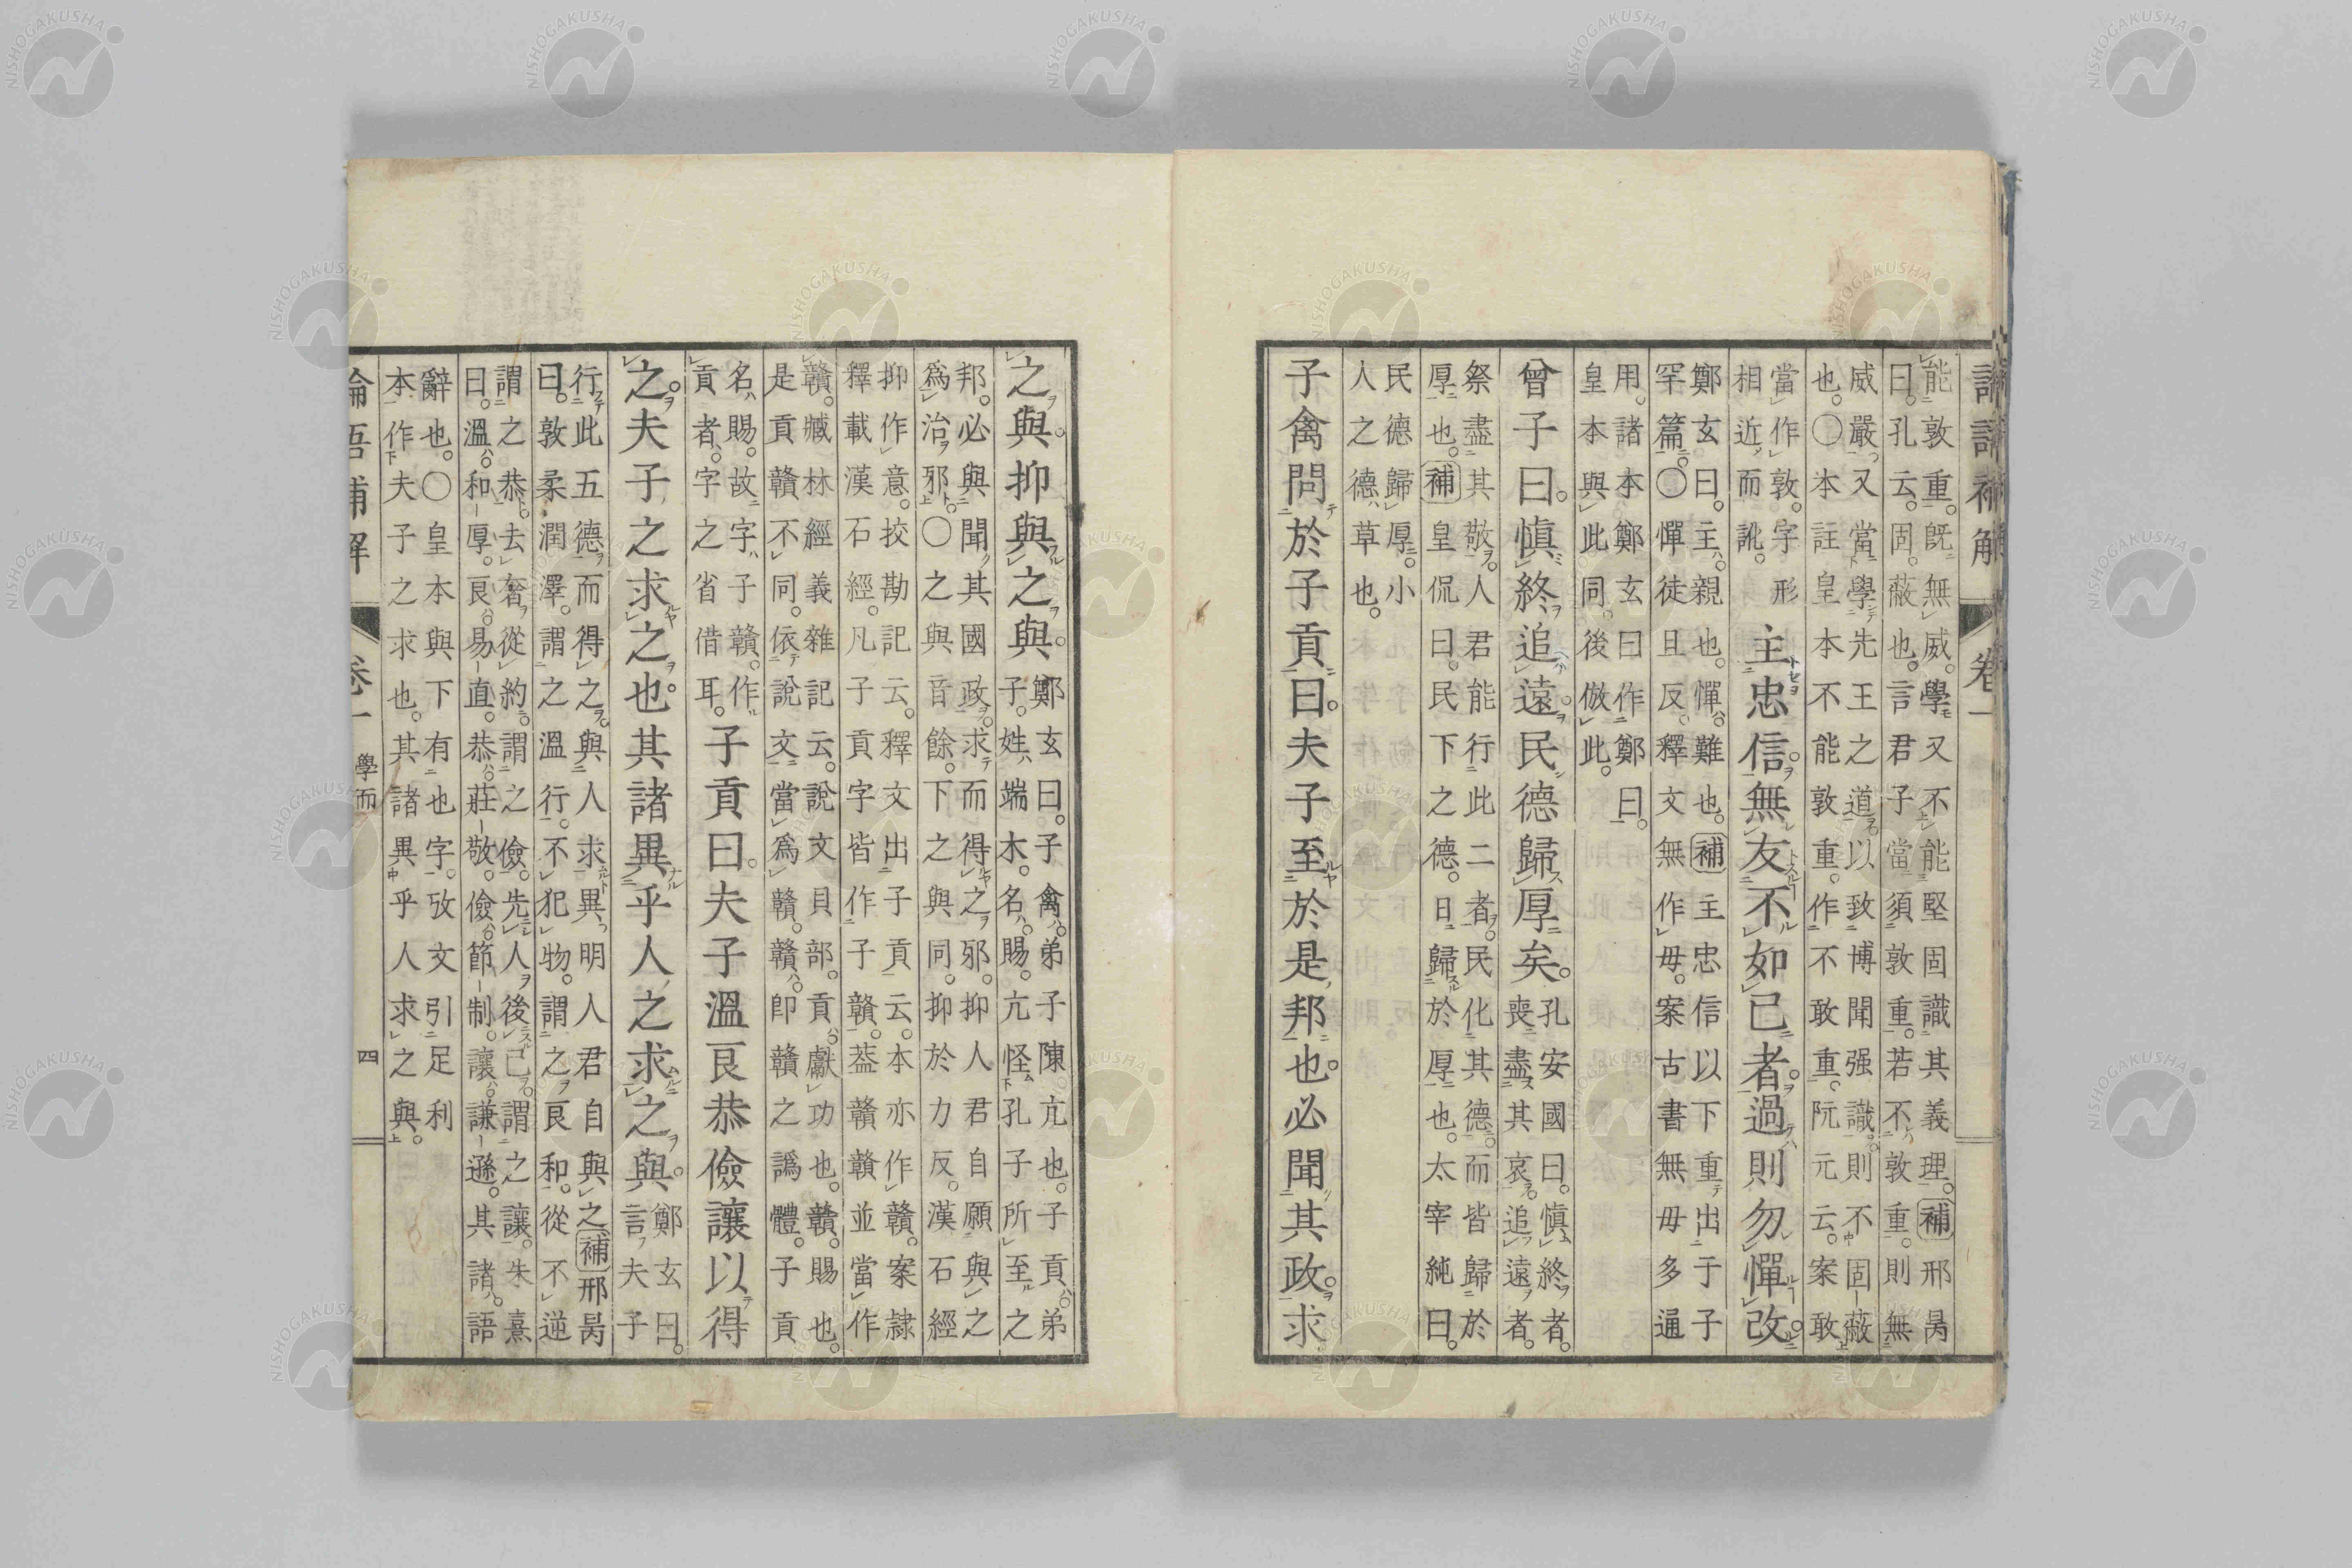 論語補解 卷一
能敦重。既無威。學又不能堅固識其義理。補邢昺
曰。孔云。固蔽也。言君子當須敦重。若不敦重。則無
威嚴又當學先王之道。以致博聞强識。則不固蔽
也。〇本註皇本不能敦重。作不敢重。阮元云。案敢
當作敦。字形
相近而訛。
主忠信。無友不如已者。過則勿憚改。
鄭玄曰。主親也。憚難也。補主忠信以下重出于子
罕篇。〇憚徒旦反。釋文無作毋。案古書無毋多通
用。諸本鄭玄曰作鄭曰。
皇本與此同。後倣此。
曾子曰。愼終追遠。民德歸厚矣。
孔安國曰。愼終者。
喪盡其哀。追遠者。
祭盡其敬。人君能行此二者。民化其德。而皆歸於
厚也。補皇侃曰。民下之德。日歸於厚也。太宰純曰。
民德歸厚。小
人之德草也。
子禽問於子貢曰。夫子至於是邦也。必聞其政。求
之與。抑與之與。
鄭玄曰。子禽。弟子陳亢也。子貢。弟
子。姓端木。名賜。亢怪孔子所至之
邦。必與聞其國政。求而得之邪。抑人君自願與之
爲治邪。〇之與音餘。下之與同。抑於力反。漢石經
抑作意。挍勘記云。釋文出子貢云。本亦作贛。案隷
釋載漢石經。凡子貢字皆作子贛。葢贛贛並當作
贛。臧林經義雜記云。說文貝部。貢。獻功也。贛。賜也。
是貢贛不同。依說文當爲贛。贛。卽贛之譌體。子貢
名賜。故字子贛。作
貢者。字之省借耳。
子貢曰。夫子溫良恭儉讓以得
之。夫子之求之也。其諸異乎人之求之與。
鄭玄曰。
言夫子
行此五德而得之。與人求異。明人君自與之。補邢昺
曰。敦柔潤澤。謂之溫。行不犯物。謂之良。和從不逆
謂之恭。去奢從約。謂之儉。先人後已。謂之讓。朱熹
曰。溫。和厚。良。易直。恭。莊敬。儉。節制。讓。謙遜。其諸。語
辭也。〇皇本與下有也字。攷文引足利
本作夫子之求也。其諸異乎人求之與。
論語補解 卷一 學而 四